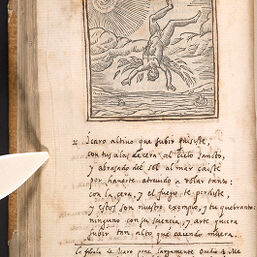 Icaro altivo que subir quisiste,
con tus alas de cera al cielo santo,
y abrasado del sol al mar caiste
por hauerte atreuido a volar tanto:
con la cera, y el fuego te perdiste
y estos son nuestro exemplo, y tu quebranto:
ninguno con su sciencia, y arte quiera
subir tan alto que caiendo muera.
la fabula de Icaro pone largamente Ouidio 8. Me